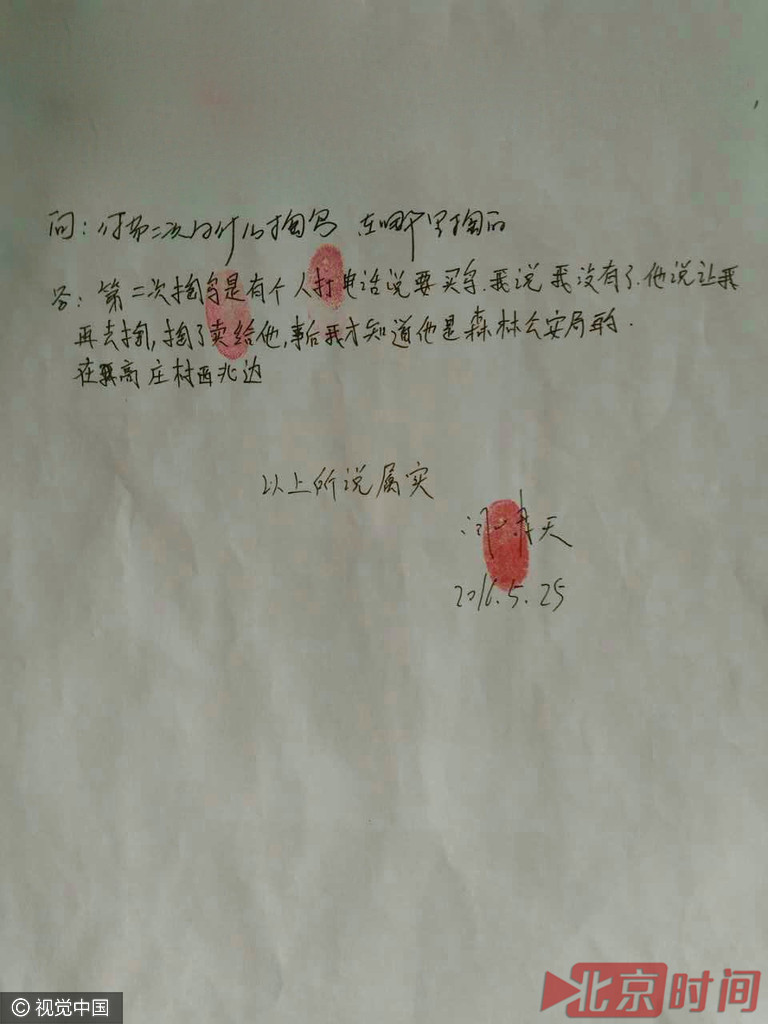 问:你第二次为什么掏鸟 在哪个里掏的
答:第二次掏鸟是有个人打电话说要买鸟.我说我没有了.他说让我
再去掏,掏了卖给他,事后我才知道他是森林公安局的.
在高庄村西北边
以上所说属实
天
2016.5.25
© 视觉中国
北京时间